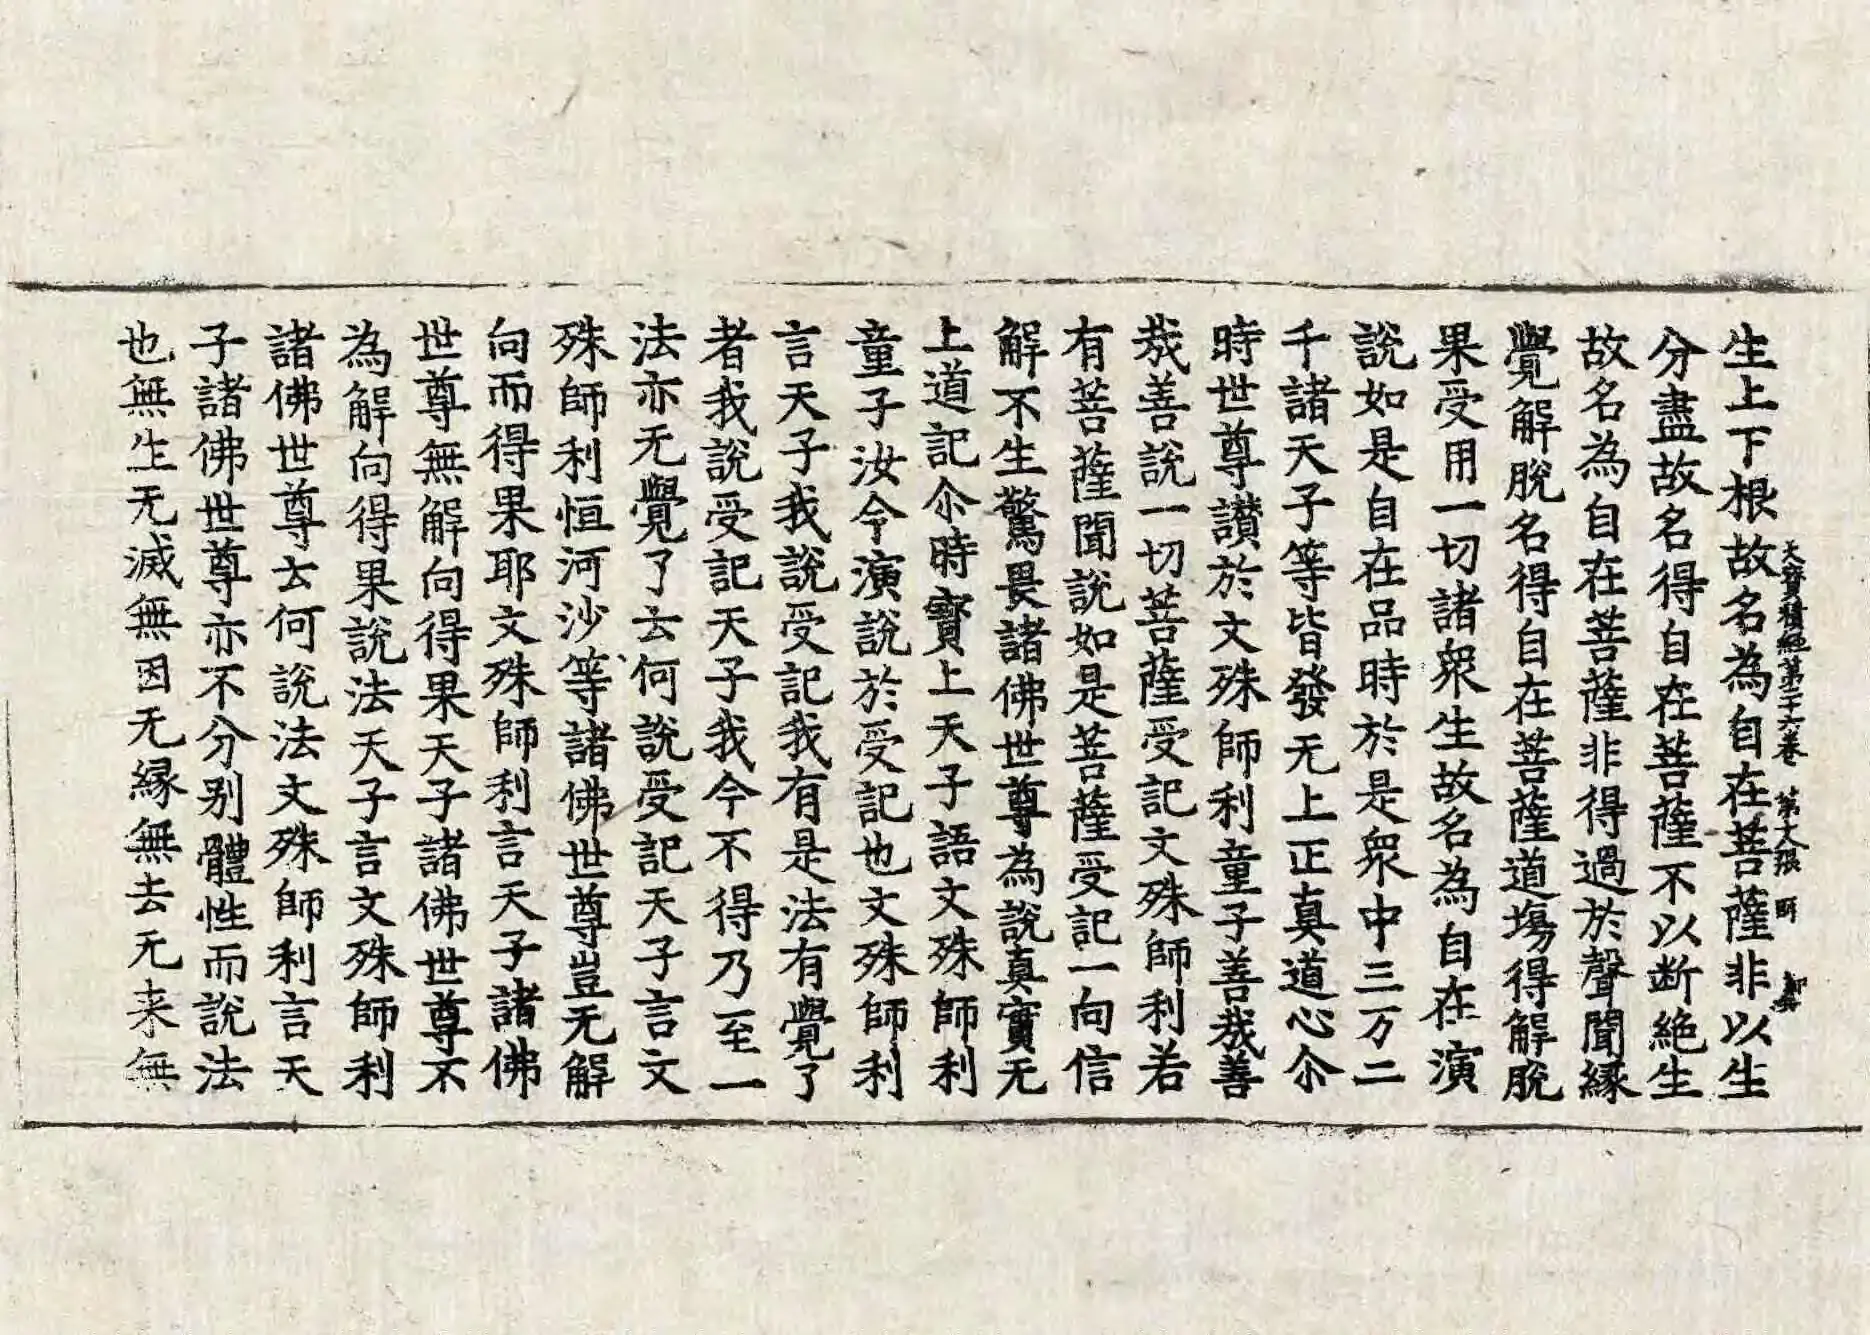 大寶積經第二十六卷　第大張　師
生上下根故名為自在菩薩非以生
分盡故名得自在菩薩不以断絕生
故名為自在菩薩非得過於聲聞緣
覺解脫名得自在菩薩道場得解脫
果受用一切諸眾生故名為自在演
說如是自在品時於是眾中三万二
千諸天子等皆發无上正真道心尒
時世尊讃於文殊師利童子善哉善
哉善說一切菩薩受記文殊師利若
有菩薩聞說如是菩薩受記一向信
解不生驚畏諸佛世尊為說真實无
上道記尒時寶上天子語文殊師利
童子汝今演說於受記也文殊師利
言天子我說受記我有是法有覺了
者我說受記天子我今不得乃至一
法亦无覺了云何說受記天子言文
殊師利恒河沙等諸佛世尊豈无解
向而得果耶文殊師利言天子諸佛
世尊無解向得果天子諸佛世尊不
為解向得果說法天子言文殊師利
諸佛世尊云何說法文殊師利言天
子諸佛世尊亦不分别體性而說法
也無生无滅無因无緣無去无来無